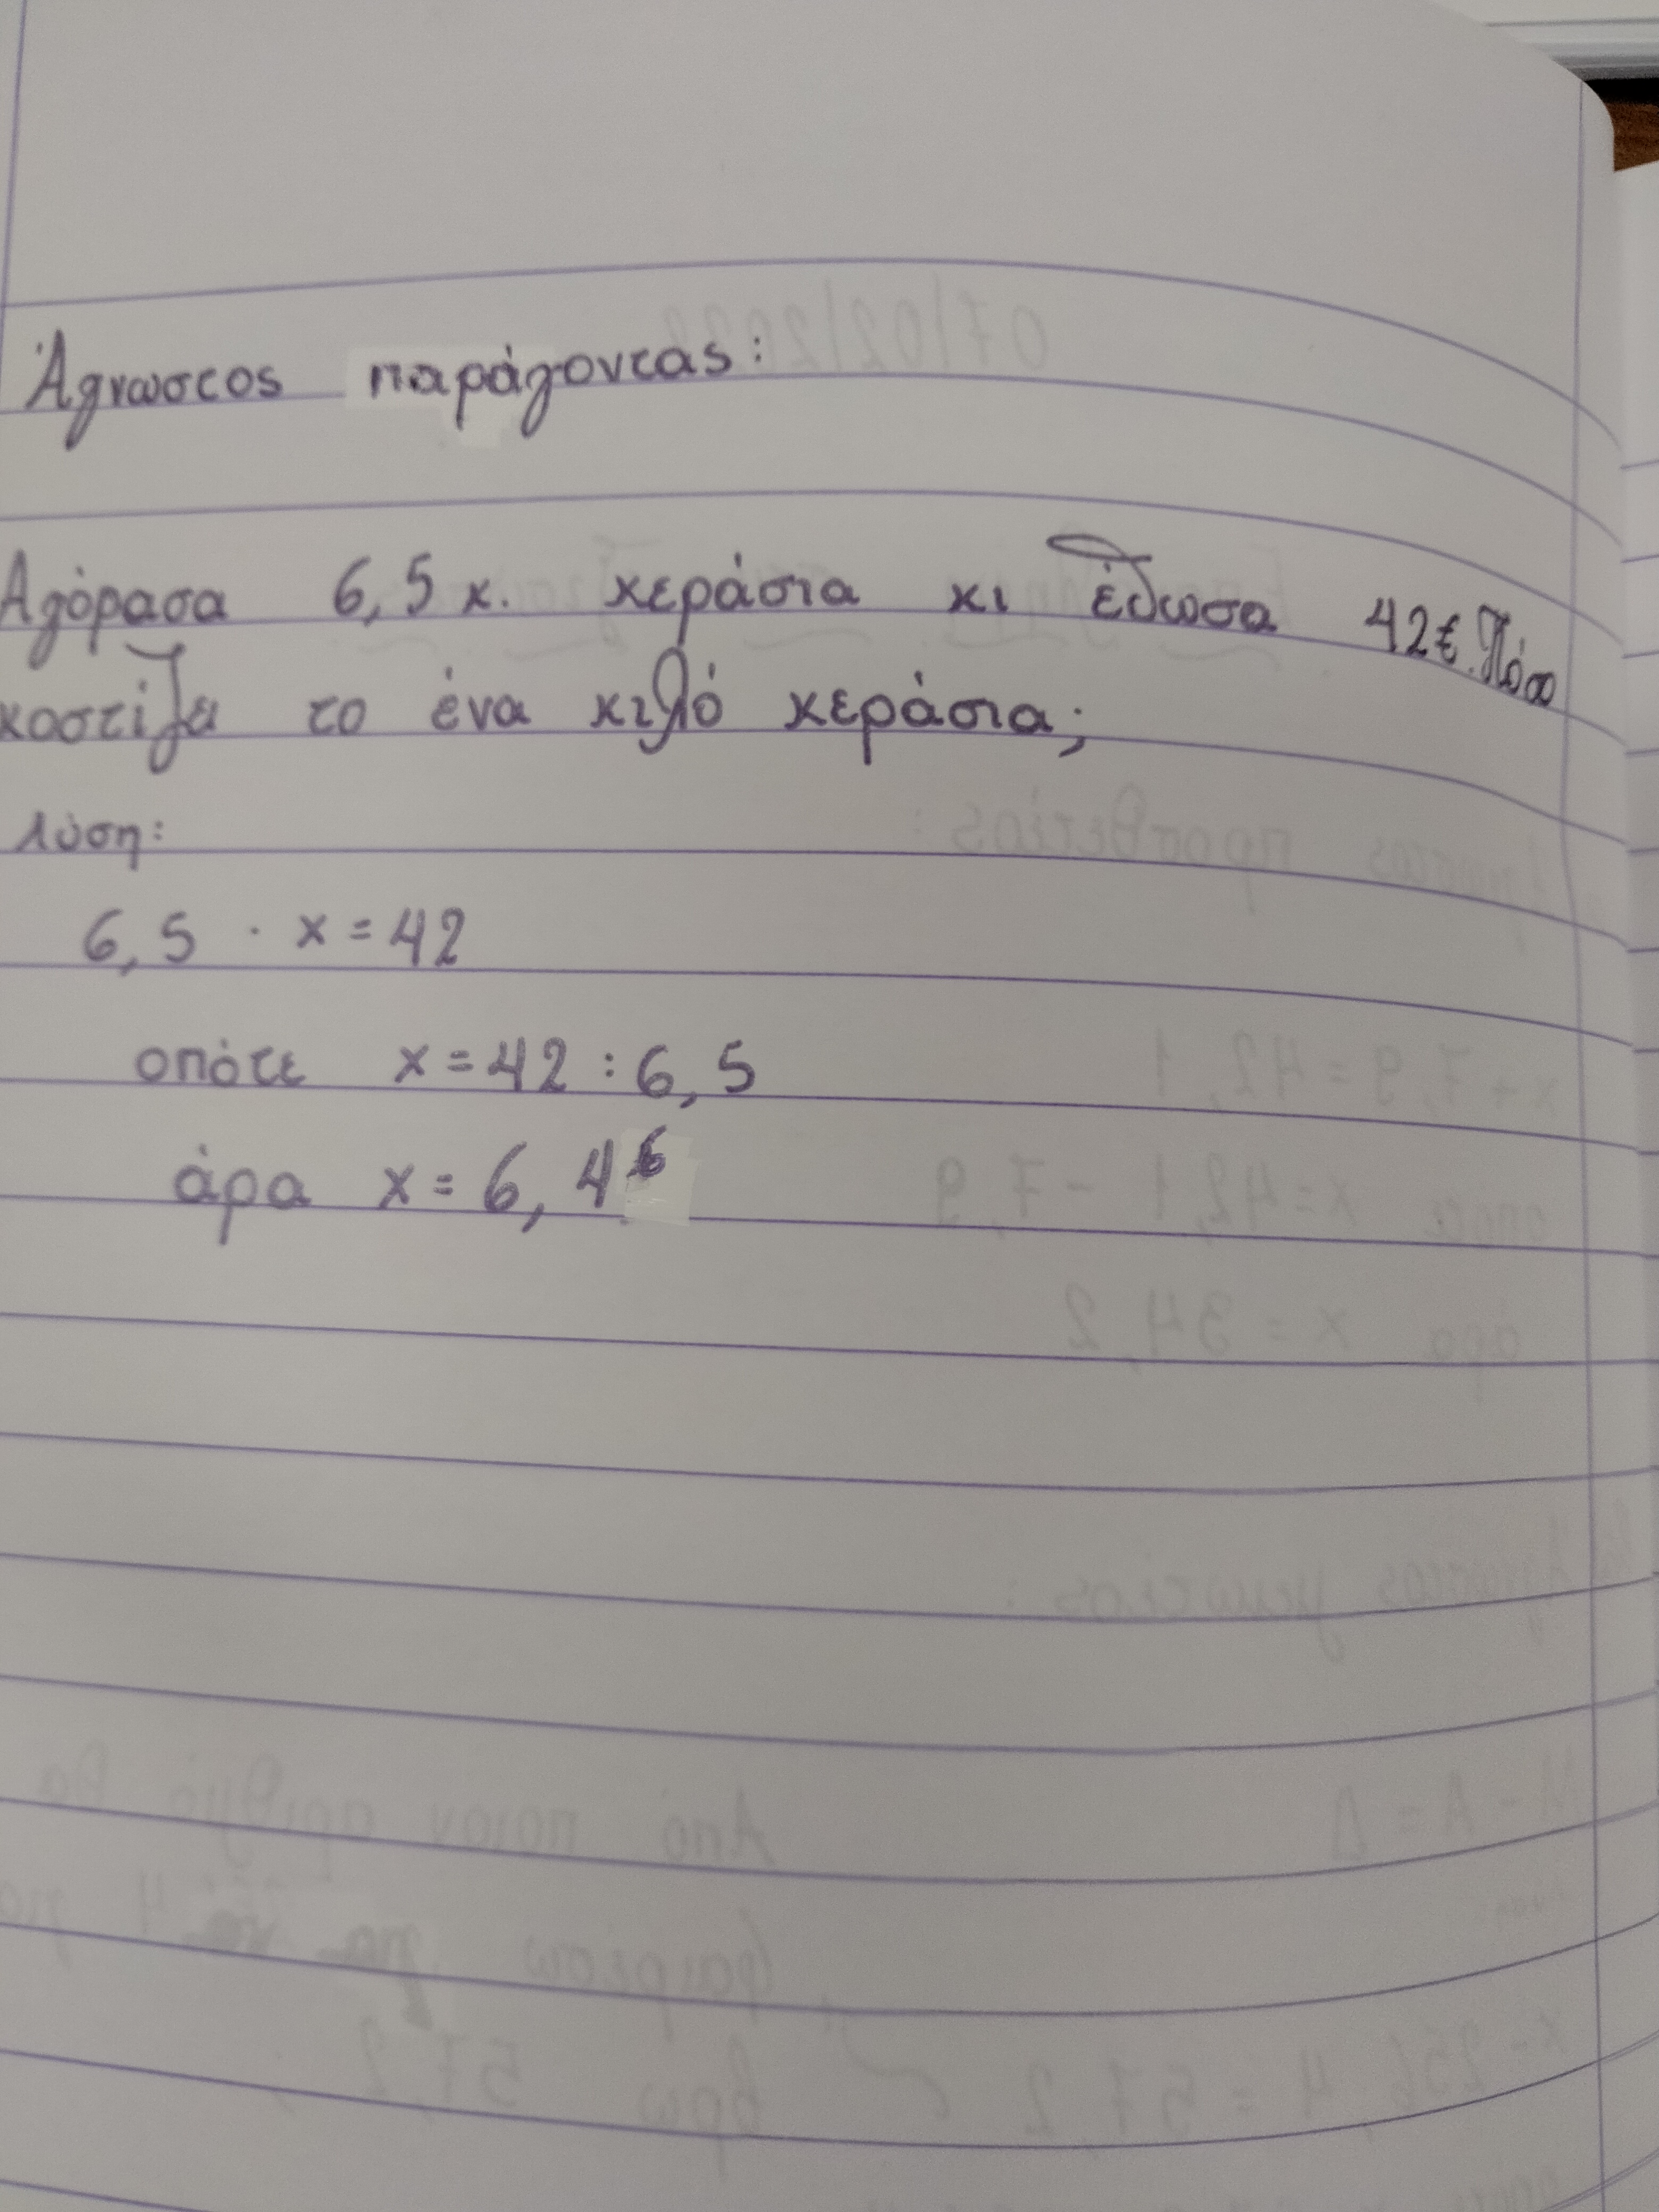 Άγνωστος παράγοντας:
Αγόρασα 6,5 κ. κεράσια κι έδωσα 42€. Πόσο
κοστίζει το ένα κιλό κεράσια;
Λύση:
6,5 · x = 42
οπότε x = 42 : 6,5
άρα x = 6,46